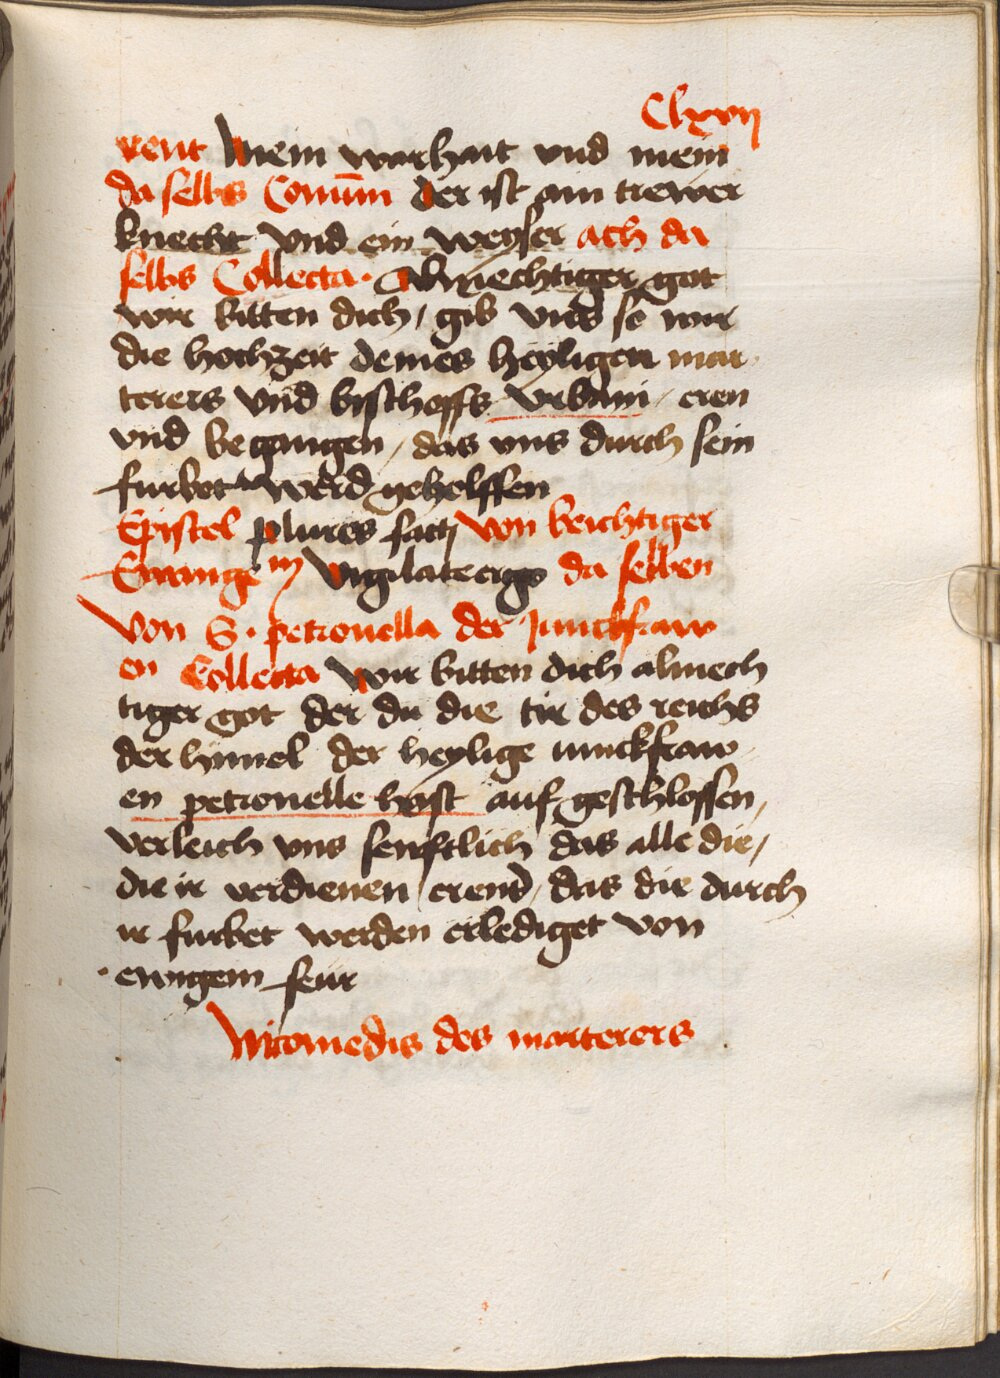 Clxvij
rent Mein warhait vnd mein
da selbs Comūn der ist ain trewer
knecht vnd ein weyser ach da
selbs Collecta. Almechtiger got
wir bitten dich / gib vns so wir
die hochzeit deines heyligen mar
terers vnd bischoffs vrbani / eren
vnd begangen / das vns durch sein
furbet werd geholffen
Epistel plures facti von beichtiger
Ewange m vigilate ergo da selben
Von S. petronella der Junckfraw
en Collecta Wir bitten dich almech
tiger got der du die tür des reichs
der himel der heylige iunckfraw
en petronelle hast auf geschlossen,
verleich vns senftlich das alle die /
die ir verdienen erent / das die durch
ir furbet werden erlediget von
ewigem feür
Nicomedis des marterers